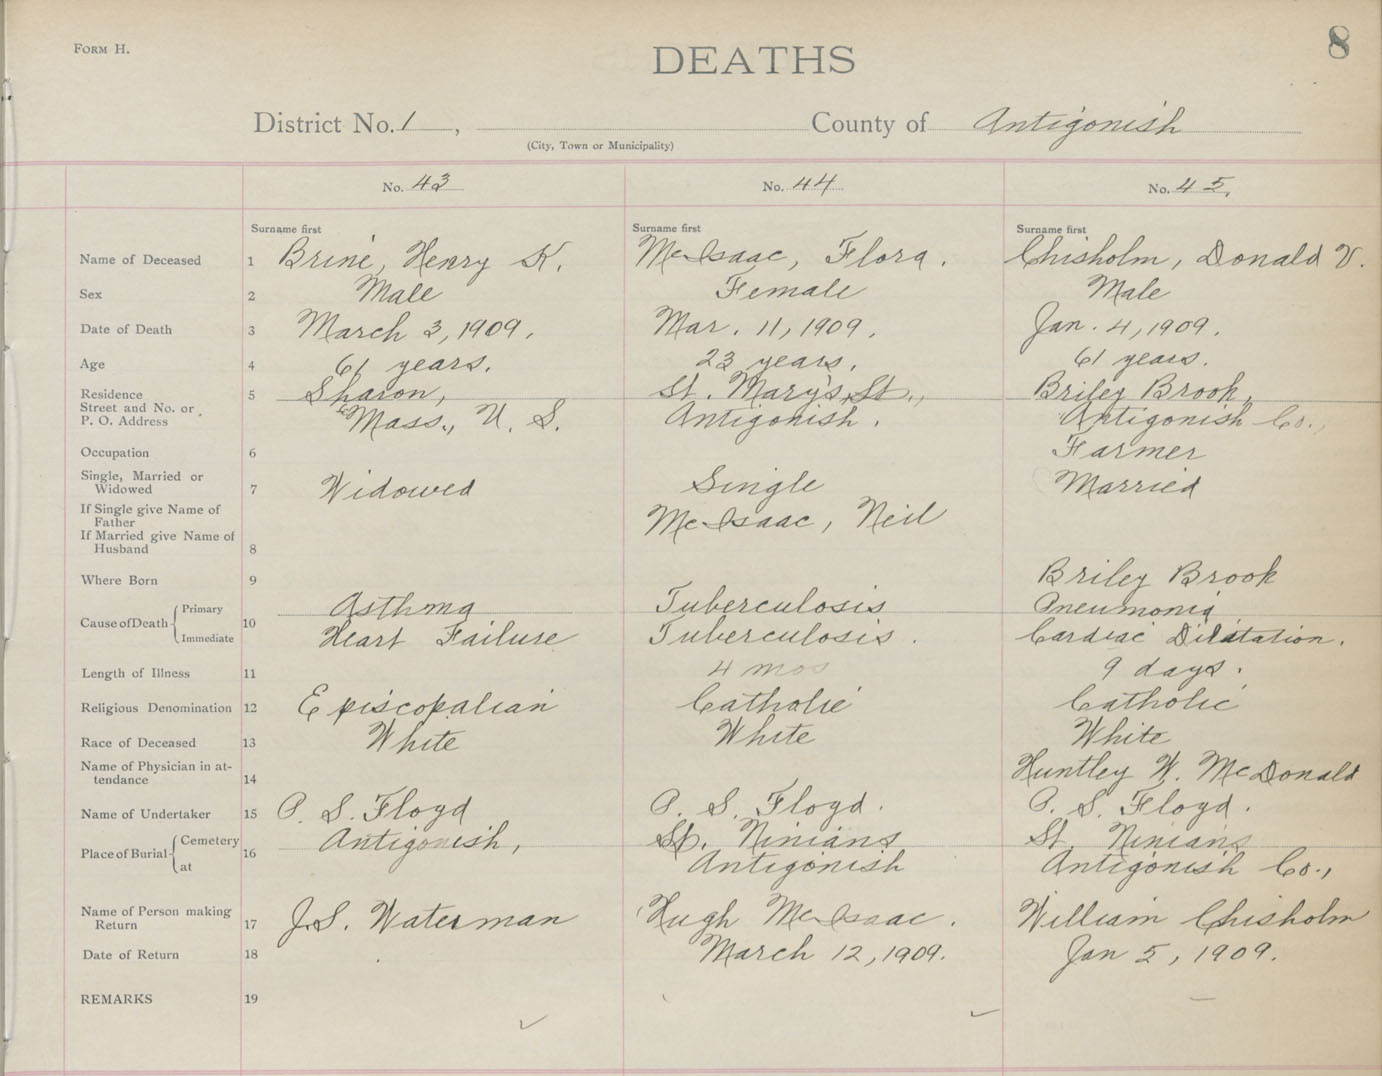 FORM H.
DEATHS
8
District No. 1, County of Antigonish
(City, Town or Municipality)
No. 43 No. 44 No. 45.
Surname first Surname first Surname first
Name of Deceased 1 Brine, Henry K. McIsaac, Flora. Chisholm, Donald V.
Sex 2 Male Female Male
Date of Death 3 March 3, 1909. Mar. 11, 1909. Jan. 4, 1909.
Age 4 61 years. 23 years. 61 years.
Residence 5 Sharon, St. Mary's St., Briley Brook,
Street and No. or
P. O. Address Mass., U. S. Antigonish. Antigonish Co.,
Occupation 6 Farmer
Single, Married or
Widowed 7 Widowed Single Married
If Single give Name of
Father McIsaac, Neil
If Married give Name of
Husband 8
Where Born 9 Briley Brook
Cause of Death Primary Asthma Tuberculosis Pneumonia
10 Immediate Heart Failure Tuberculosis. Cardiac Dilatation.
Length of Illness 11 4 mos 9 days.
Religious Denomination 12 Episcopalian Catholic Catholic
Race of Deceased 13 White White White
Name of Physician in at-
tendance 14 Huntley W. McDonald
Name of Undertaker 15 P. S. Floyd P. S. Floyd. P. S. Floyd.
Place of Burial Cemetery Antigonish, St. Ninians St. Ninians
16 at Antigonish Antigonish Co.,
Name of Person making
Return 17 J.S. Waterman Hugh McIsaac. William Chisholm
Date of Return 18 March 12, 1909. Jan 5, 1909.
REMARKS 19